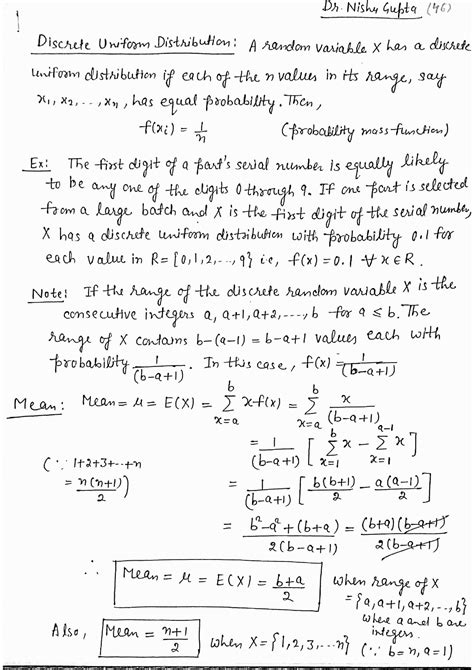 Dr. Nishu Gupta (46)
Discrete Uniform Distribution: A random variable X has a discrete
uniform distribution if each of the n values in its range, say
x₁, x₂, .., xₙ, has equal probability. Then,
f(xᵢ) = 1/n (probability mass function)
Ex: The first digit of a part's serial number is equally likely
to be any one of the digits 0 through 9. If one part is selected
from a large batch and X is the first digit of the serial number,
X has a discrete uniform distribution with probability 0.1 for
each value in R = {0,1,2,..,9} i.e, f(x) = 0.1 ∀ x ∈ R.
Note: If the range of the discrete random variable X is the
consecutive integers a, a+1, a+2, ..., b for a ≤ b. The
range of X contains b-(a-1) = b-a+1 values each with
probability 1/(b-a+1). In this case, f(x) = 1/(b-a+1)
Mean: Mean = μ = E(X) = Σ_{x=a}^{b} x f(x) = Σ_{x=a}^{b} x/(b-a+1)
= 1/(b-a+1) [ Σ_{x=1}^{b} x - Σ_{x=1}^{a-1} x ]
(∵ 1+2+3+..+n = n(n+1)/2) = 1/(b-a+1) [ b(b+1)/2 - a(a-1)/2 ]
= b²-a²+(b+a)/2(b-a+1) = (b+a)(b-a+1)/2(b-a+1)
∴ Mean = μ = E(X) = b+a/2 when range of X
= {a, a+1, a+2, .., b}
where a and b are
integers.
Also, Mean = n+1/2 when X = {1,2,3,...n} (∵ b=n, a=1)